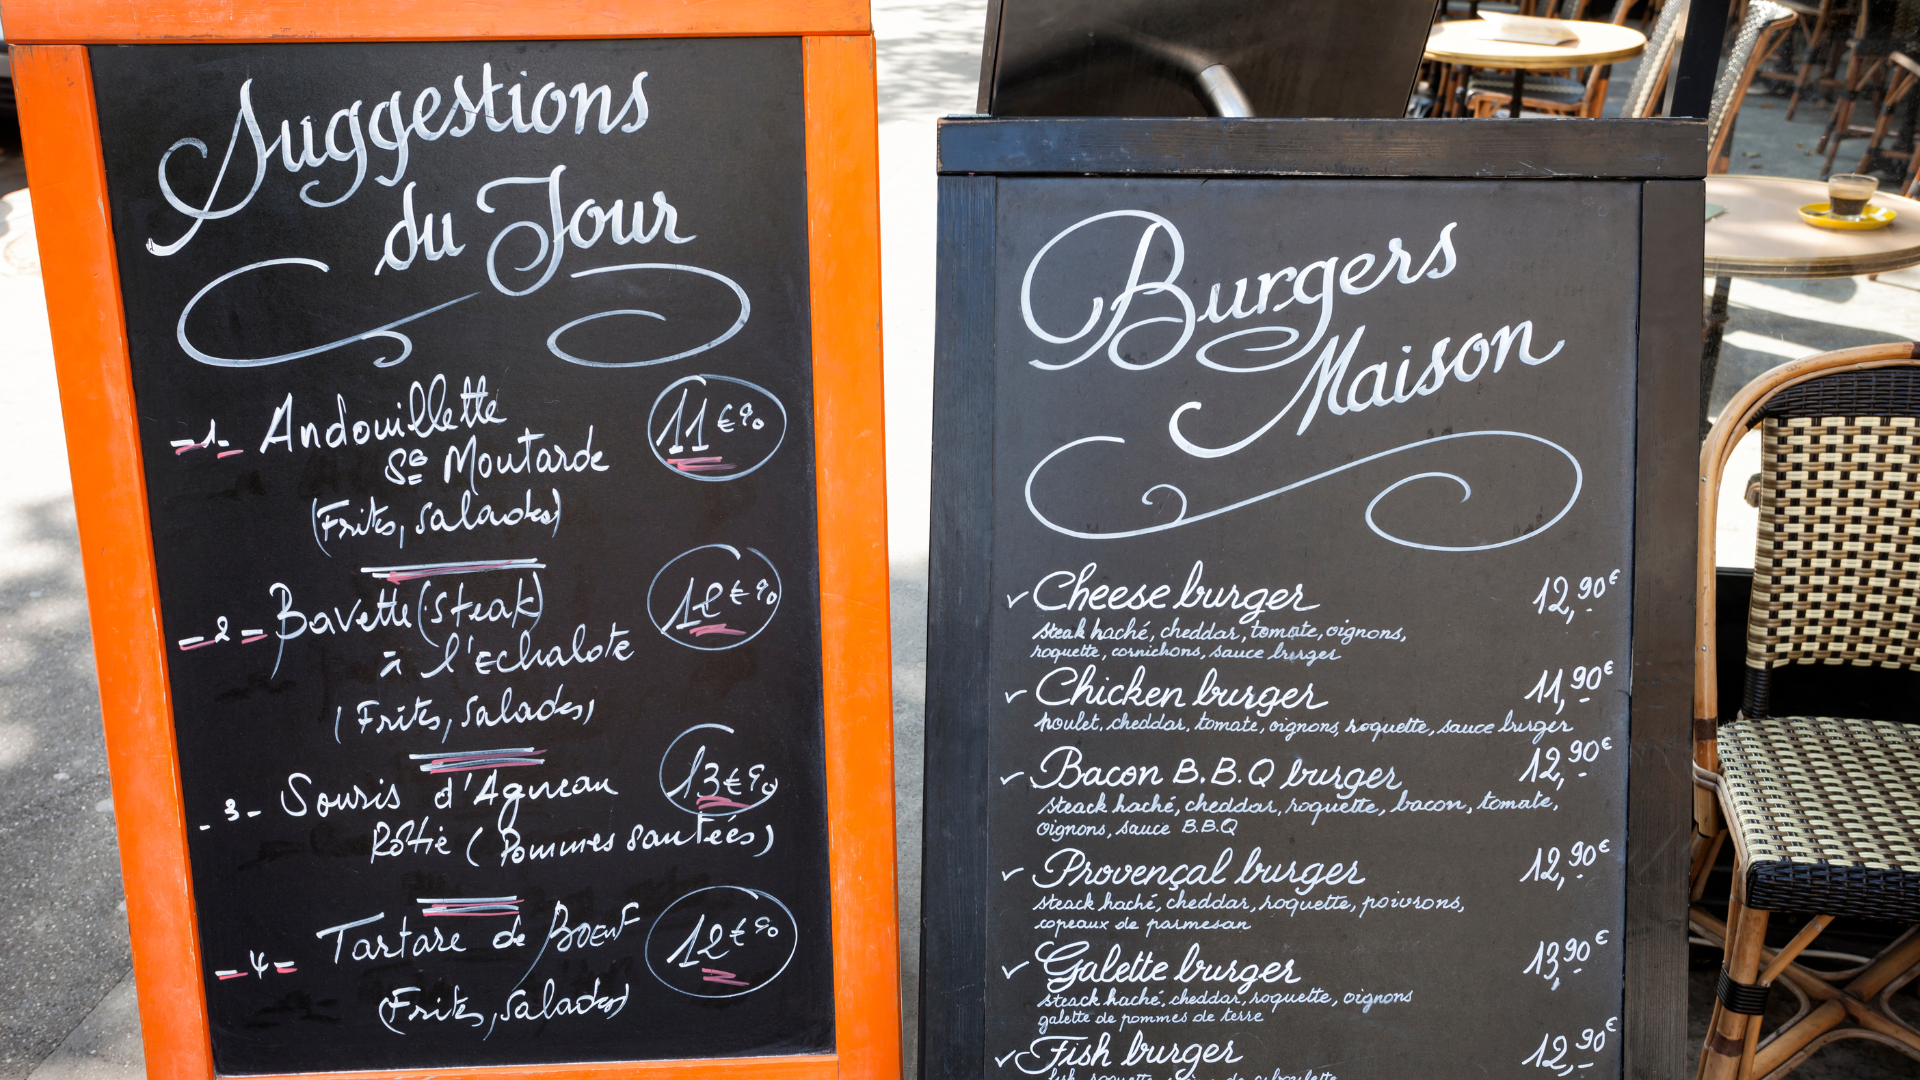 Suggestions
du Jour
-1- Andouillette 11€90
Sce Moutarde
(Frites, salades)
-2- Bavette (steak) 12€90
à l'Echalote
(Frites, salades)
-3- Souris d'Agneau 13€90
Rôtie (Pommes sautées)
-4- Tartare de Boeuf 12€90
(Frites, salades)
Burgers
Maison
✓ Cheese burger 12,90€
steak haché, cheddar, tomate, oignons,
roquette, cornichons, sauce burger
✓ Chicken burger 11,90€
poulet, cheddar, tomate, oignons, roquette, sauce burger
✓ Bacon B.B.Q burger 12,90€
steack haché, cheddar, roquette, bacon, tomate,
oignons, sauce B.B.Q
✓ Provençal burger 12,90€
steack haché, cheddar, roquette, poivrons,
copeaux de parmesan
✓ Galette burger 13,90€
steack haché, cheddar, roquette, oignons
galette de pommes de terre
✓ Fish burger 12,90€